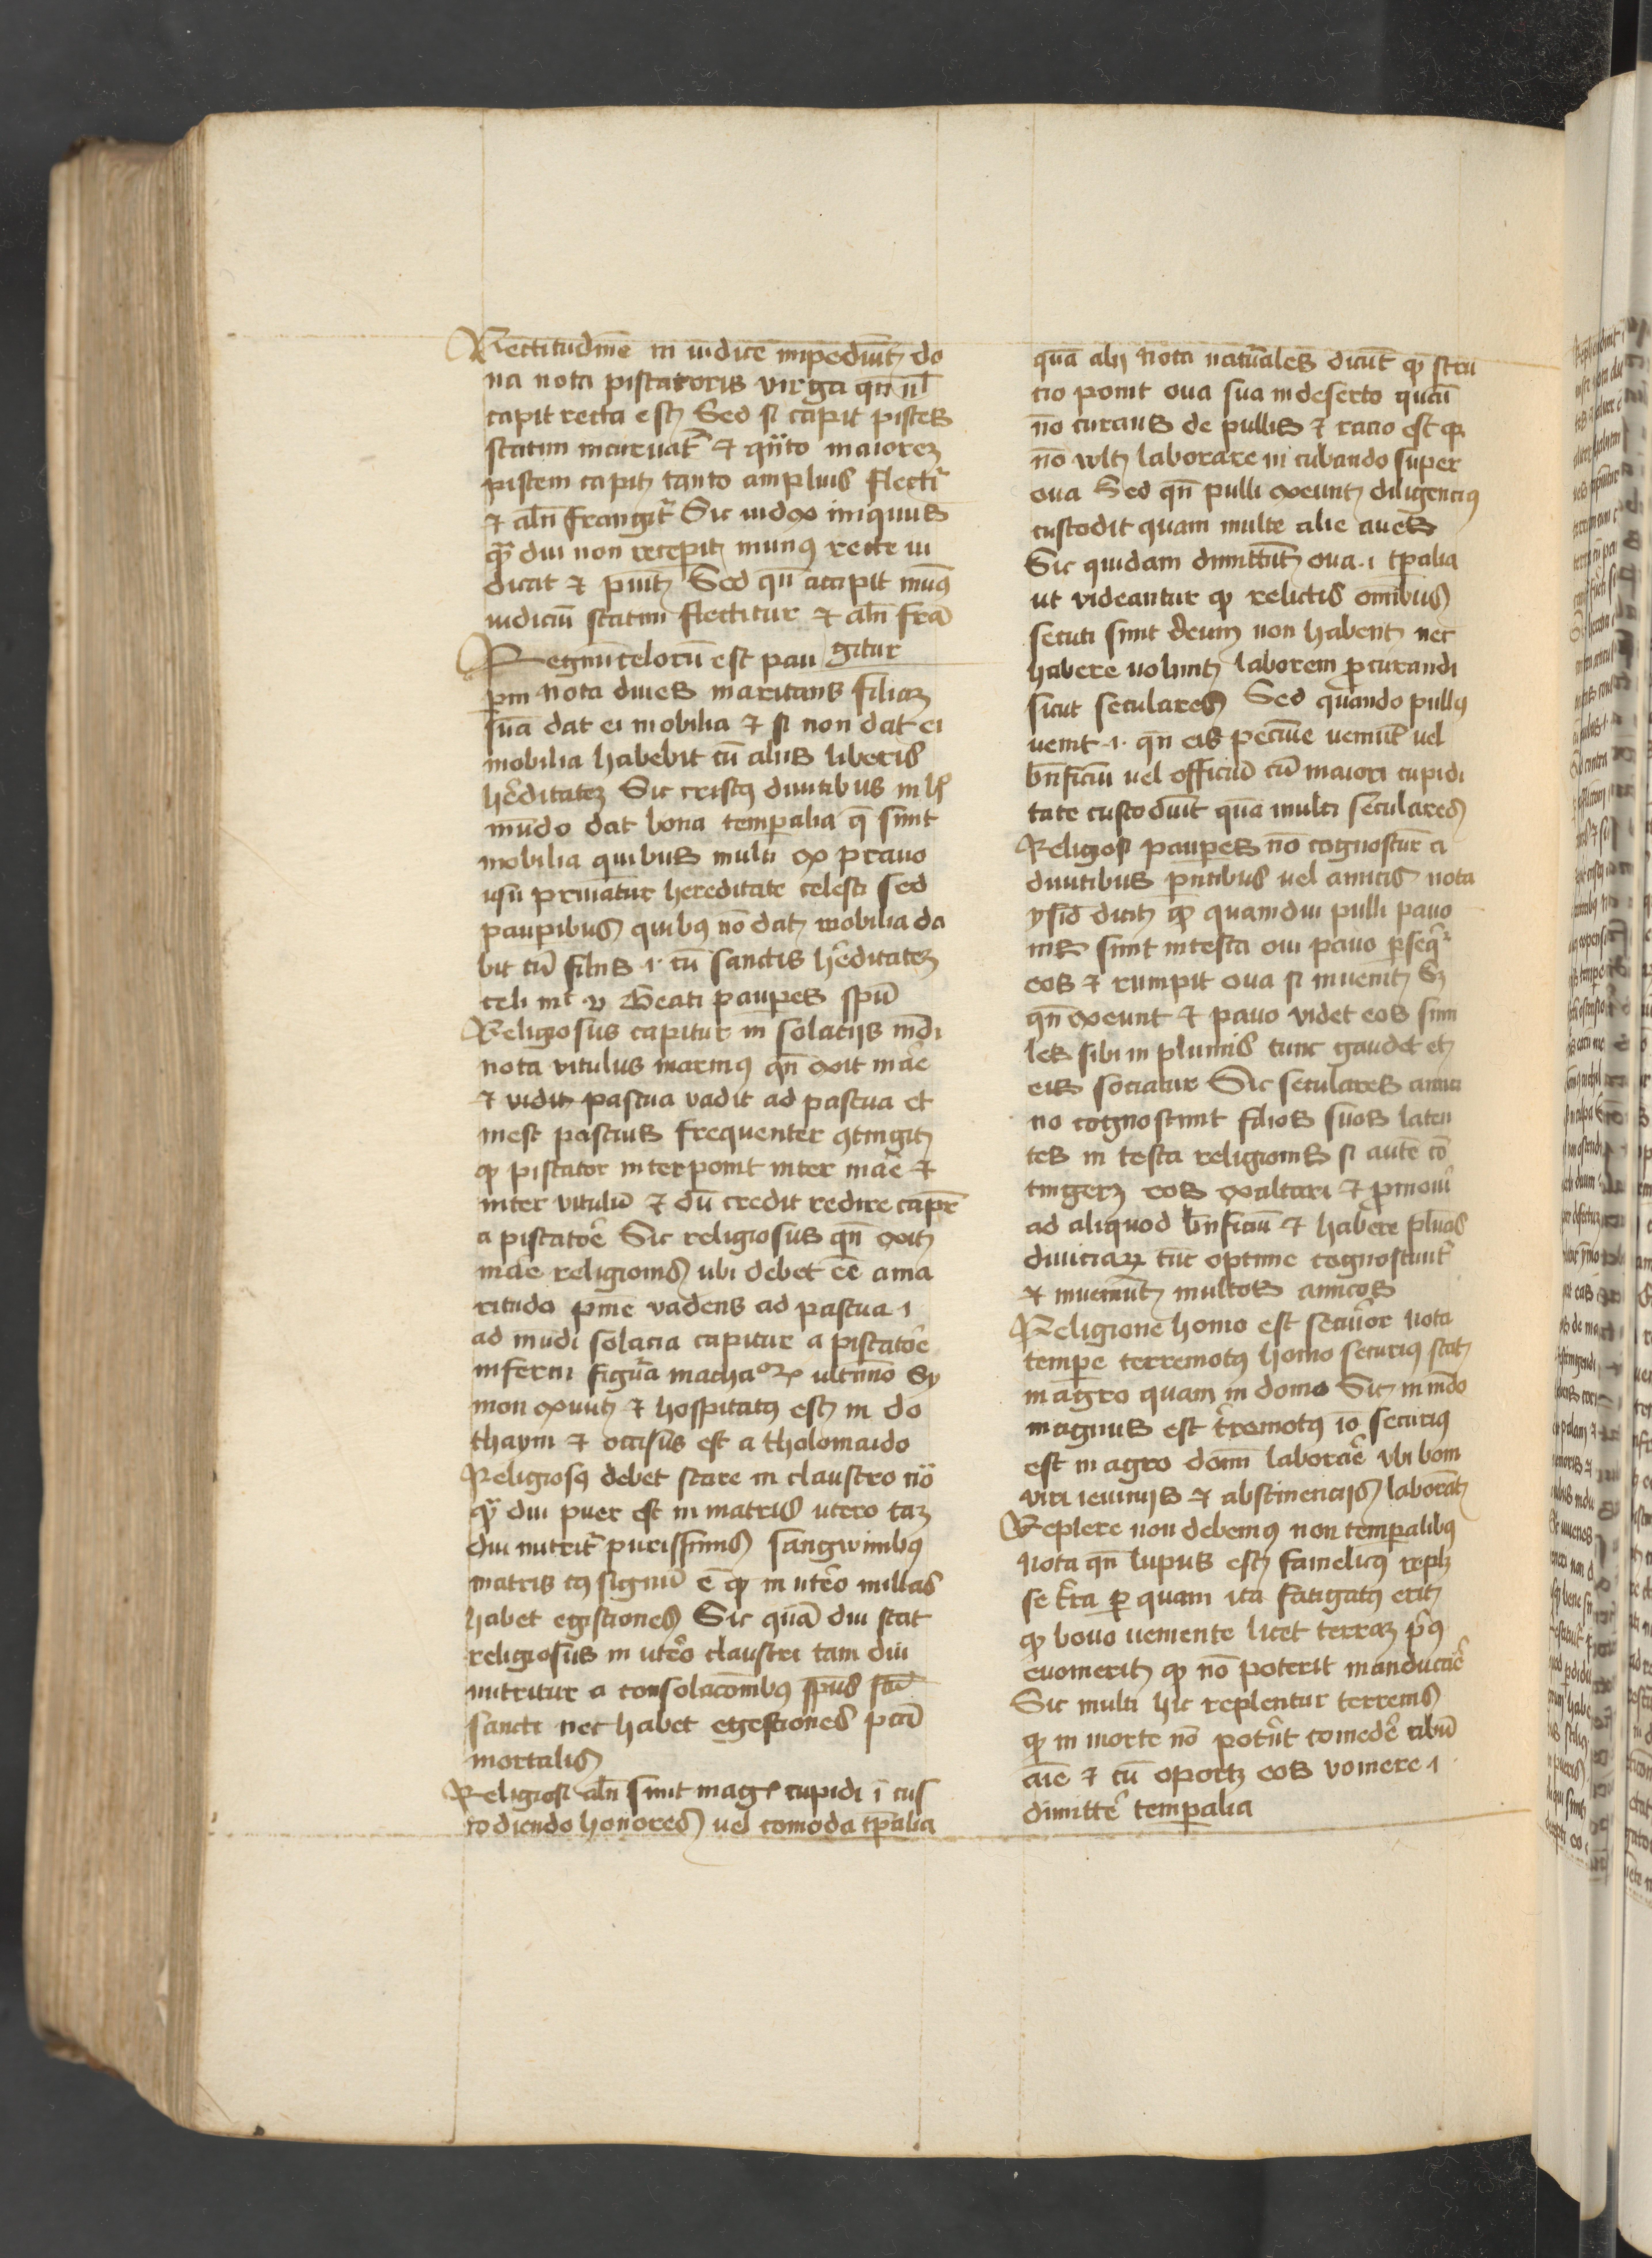 Rectitudinē in iudice impediūt do
na nota piscatoris virga qn̄ nl̄
capit recta est Sed si capit pisces
statim incuruat̄ et qn̄to maiorem
piscem capit tanto amplius flectit̄
et aln̄ frangit̄ Sic iudex iniquus
qm̄ diu non recepit munus recte iu
dicat et punit Sed qn̄ accipit mun⁹
iudiciū statim flectitur et aln̄ fran
gitur
Regnū celorū est pau
pm̄ nota diues maritans filiam
suā dat ei mobilia et si non dat ei
mobilia habebit cū aliis liberis
hēditatem Sic cristus diuitibus in h̄
mūdo dat bona temporalia q̄ sunt
mobilia quibus multi ex prauo
usu priuātur hereditate celesti sed
paupibus quibus nō dat mobilia da
bit cū filiis .i. cū sanctis hēditatem
celi mt̄ v Beati paupes spū
Religiosus capitur in solaciis mūdi
nota vitulus marin⁹ qn̄ exit māe
et vidit pascua vadit ad pascua et
in est pascius frequenter 9tingit
qp piscator interponit inter māe et
inter vitulū et dū credit redire capit̄
a piscatoē Sic religiosus qn̄ exit
māe religionis ubi debet eē ama
ritudo pnīe vadens ad pascua .i.
ad mūdi solacia capitur a piscatoē
inferni figūa machaorꝝ ultimo Sy
mon exiuit et hospitatus est in do
thaym et occisus est a tholomaido
Religiosus debet stare in claustro nō
qm̄ diu puer est in matris utero tam
diu nutrit̄ purissimis sangwinibus
matris cuius signū ē qp in utēo nullas
habet egestiones Sic quā diu stat
religiosus in utēo claustri tam diu
nutritur a consolacōnibus spūs
sancti nec habet egestiones pccī
mortalis
Religiosi aln̄ sunt mag᷒ cupidi ī cus
todiendo honores uel comoda tp̄alia
quā alij Nota natūales dicūt qp stru
cio ponit oua sua in deserto quasi
nō curans de pullis et racio est qp
nō vult laborare in cubando super
oua Sed qn̄ pulli exeunt diligencius
custodit quam multe alie aues
Sic quidam dimittūt oua .i. tp̄alia
ut videantur qp relictis omībus
secuti sunt deum non habent nec
habere uolunt laborem ꝓcurandi
sicut seculares Sed quando pullus
uenit .i. qn̄ eis pecunie ueniūt uel
bn̄ficiū uel officiū cū maiori cupidi
tate custodiūt quā multi seculares
Religiosi paupes nō cognoscūtur a
diuitibus pn̄tibus uel amicis nota
ysid dicit qp quamdiu pulli pauo
nis sunt in testa oui pauo ꝑseqt̄
eos et rumpit oua si inuenit Sꝫ
qn̄ exeunt et pauo videt eos simi
les sibi in plumis tunc gaudet et
eis sociatur Sic seculares amici
nō cognoscunt filios suos laten
tes in testa religionis si autē cō
tingerit eos exaltari et ꝓmoui
ad aliquod bn̄ficiū et habere plūas
diuiciarꝝ tūc optime cognoscunt̄
et inueniūt multos amicos
Religione homo est secūior Nota
tempe terremotus homo securius stat
in agro quam in domo Sic in mūdo
magnus est t̄remotus iō securius
est in agro domī laboraē vbi boni
viri ieiuniis et abstinenciis laborāt
Replere non debemus non temporalibus
Nota qn̄ lupus est famelicus replet
se t̄ra ꝑ quam ita fatigatus erit
qp bouo ueniente licet terram pi⁹
euomerit qp nō poterit manducāe
Sic multi hic replentur terrenis
qp in morte nō potūt comedē cibū
aīe et tū oportꝫ eos vomere .i.
dimittē temporalia